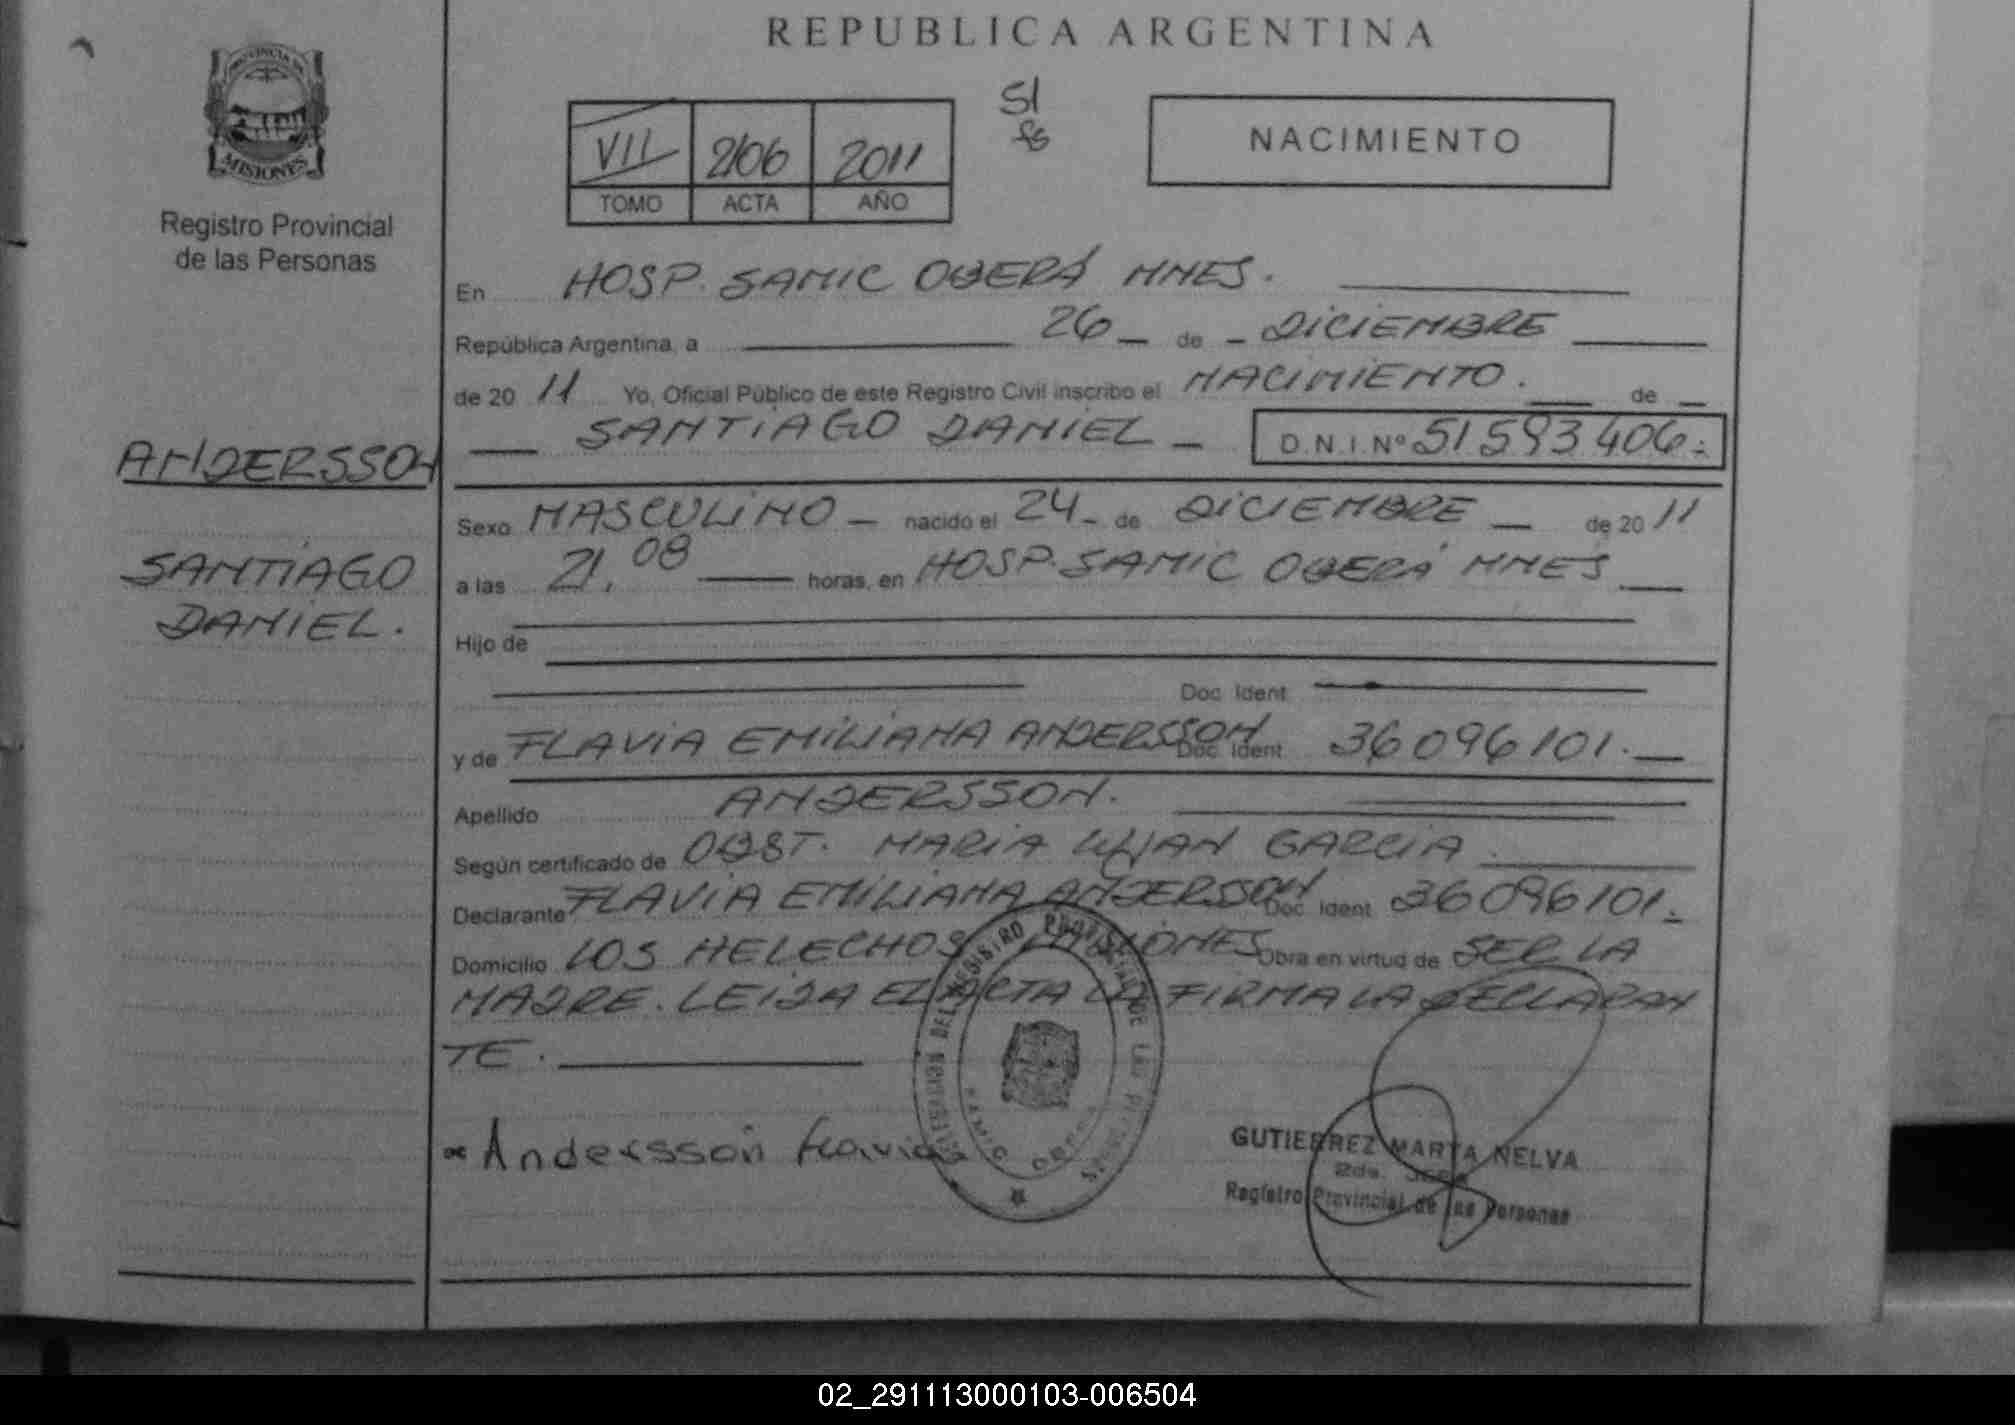 REPUBLICA ARGENTINA
PROVINCIA DE
MISIONES
Registro Provincial
de las Personas
VII 2106 2011
TOMO ACTA AÑO
SI
NACIMIENTO
En HOSP. SAMIC OBERÁ MNES.
República Argentina, a 26 de DICIEMBRE
de 20 11 Yo, Oficial Público de este Registro Civil inscribo el NACIMIENTO. de
SANTIAGO DANIEL D.N.I. Nº 51593406.
ANDERSSON
SANTIAGO
DANIEL.
Sexo MASCULINO nacido el 24 de DICIEMBRE de 20 11
a las 21,08 horas, en HOSP. SAMIC OBERÁ MNES
Hijo de
Doc. Ident.
y de FLAVIA EMILIANA ANDERSSON Doc. Ident. 36096101.
Apellido ANDERSSON.
Según certificado de OBST. MARIA LILIAN GARCIA.
Declarante FLAVIA EMILIANA ANDERSSON Doc. Ident. 36096101.
Domicilio LOS HELECHOS MISIONES Obra en virtud de SER LA
MADRE. LEIDA EL ACTA LA FIRMA LA DECLARAN
TE.
DELEGACION DEL REGISTRO PROVINCIAL DE LAS PERSONAS
Andersson Flavia
GUTIERREZ MARTA NELVA
2da. JEFE
Registro Provincial de las Personas
02_291113000103-006504